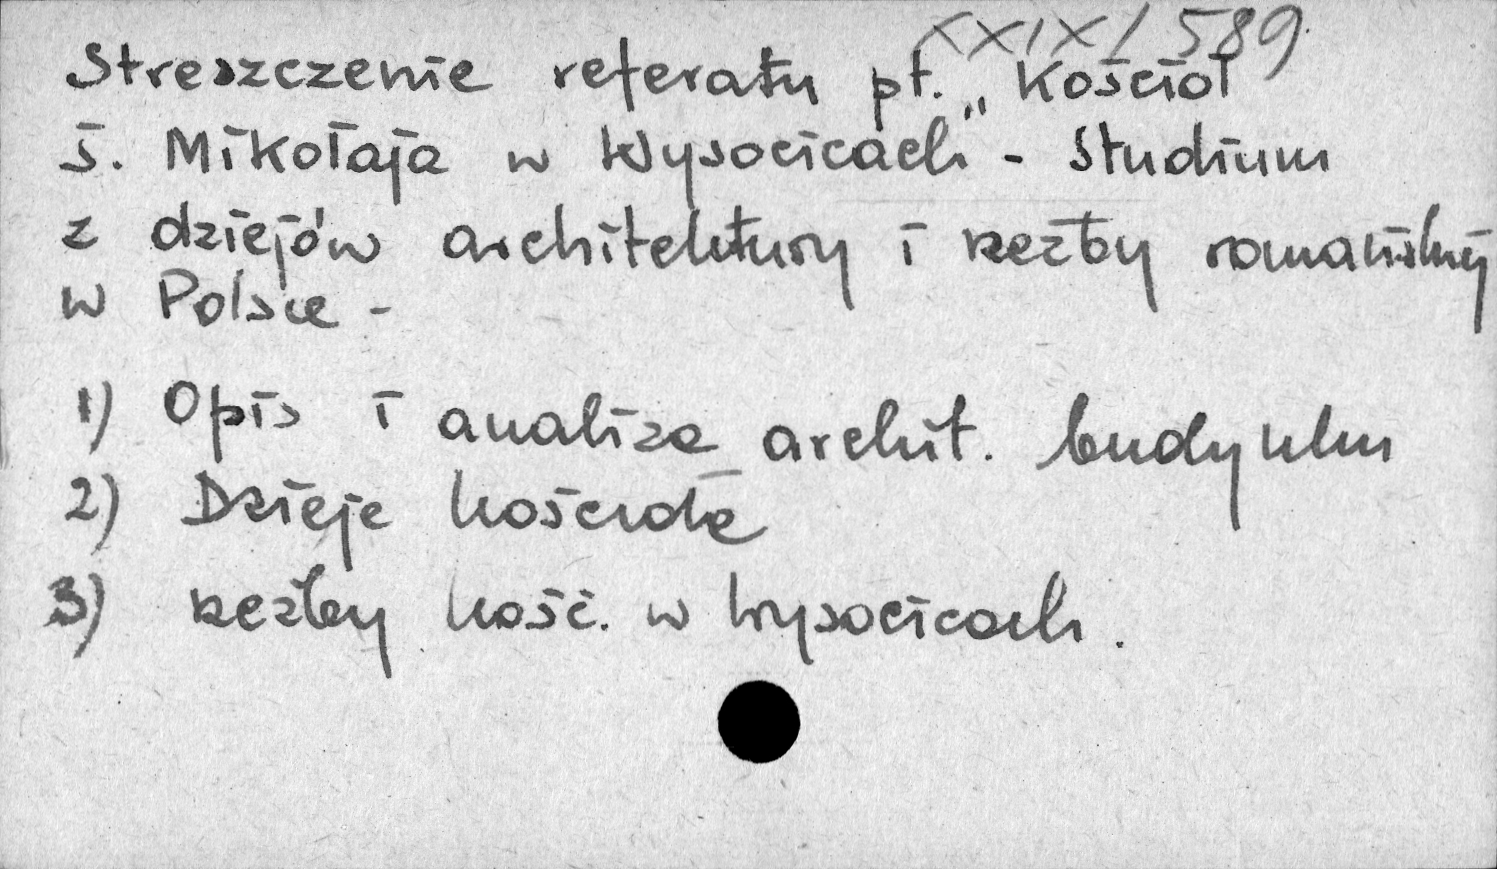 XXIX/589
Streszczenie referatu pt. „Kościół
ś. Mikołaja w Wysocicach" - Studium
z dziejów architektury i rzeźby romańskiej
w Polsce -
1) Opis i analiza archit. budynku
2) Dzieje kościoła
3) rzeźby kość. w Wysocicach.